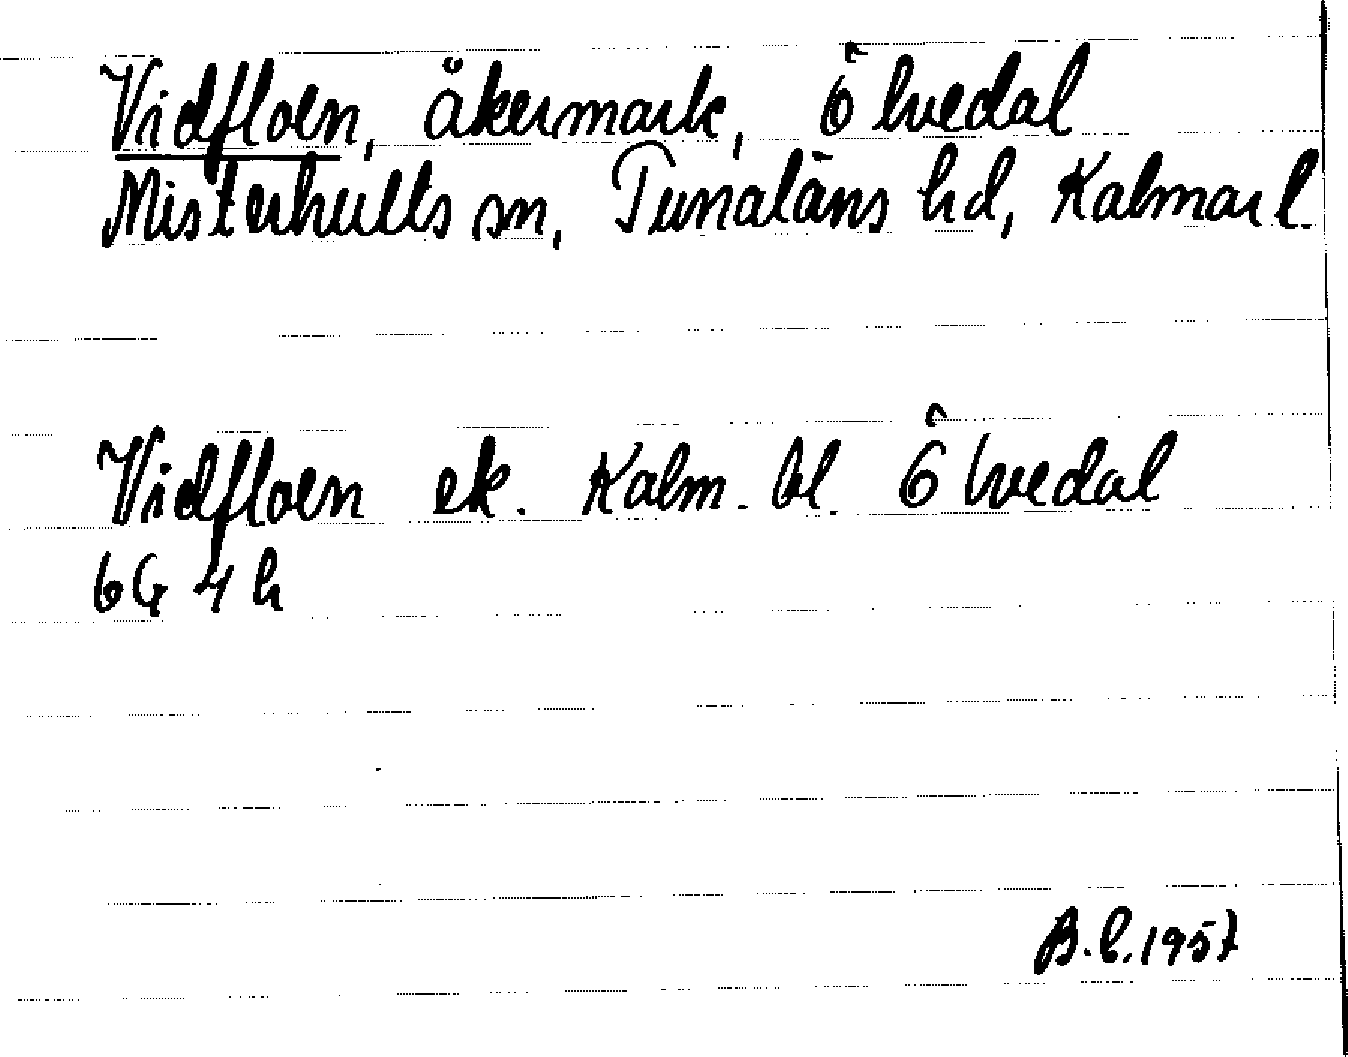 Vidfloen, åkermark, Ölvedal
Misterhults sn, Tunaläns hd, Kalmar l.
Vidfloen ek. Kalm. bl. Ölvedal
6G 4h
B.C. 1957